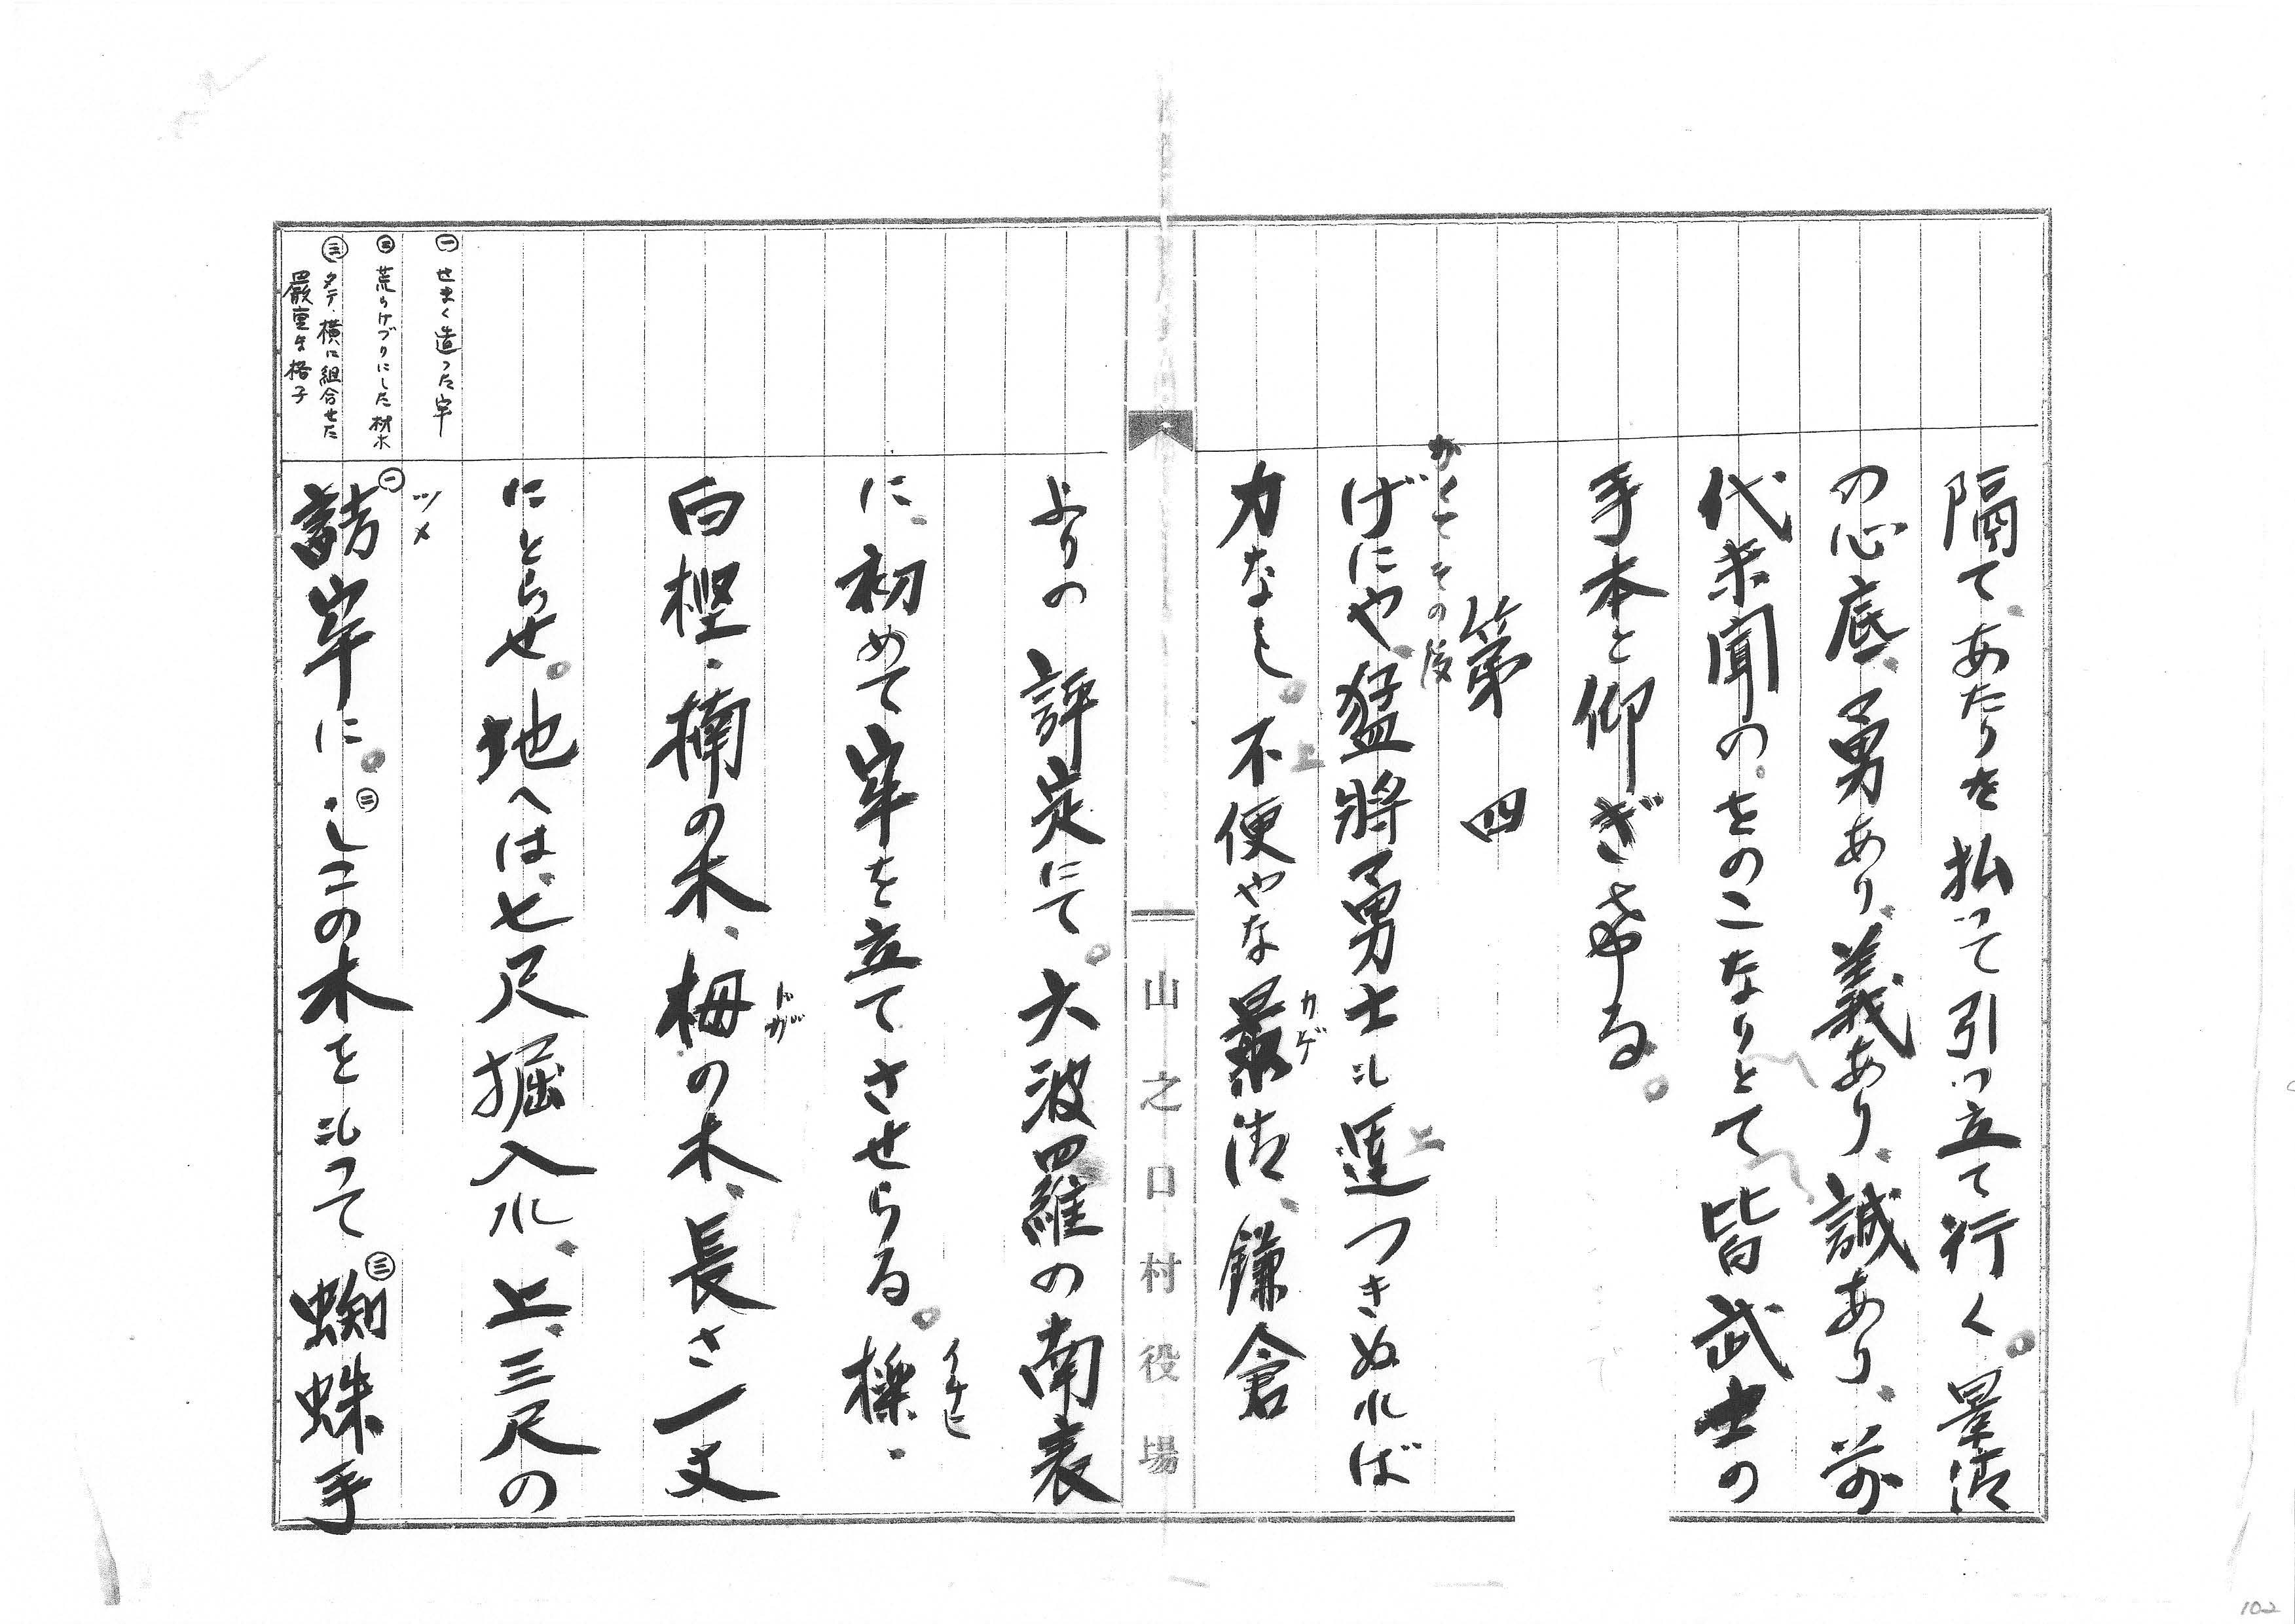 隔て、あたりを払って引っ立て行く。景清
の心底、勇あり、義あり、誠あり、前
代未聞のをのこなりとて皆武士の
手本と仰ぎける。
第四
かくてその後
げにや、猛将勇士も運つきぬれば
力なし。不便やな景清、鎌倉
カゲ
上
上
山之口村役場
よりの評定にて。六波羅の南表
に、初めて牢を立てさせらる。檪・
イチヒ
白樫・楠の木、栂の木、長さ一丈
トガ
にとらせ。地へは、七尺掘入れ、上、三尺の
詰牢に。しこの木をもって蜘蛛手
ツメ
㊀
㊁
㊂
㊀ せまく造った牢
㊁ 荒らけづりにした材木
㊂ タテ、横に組合せた
厳重な格子
102